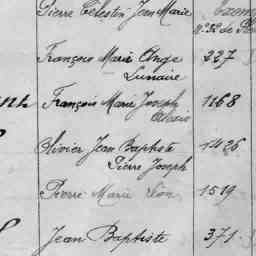 Pierre Célestin Jean Marie
François Marie Ange 227
Lunaire
François Marie Joseph 1168
Olivier Jean Baptiste 1426
Pierre Joseph
Pierre Marie Léon 1519
Jean Baptiste 371